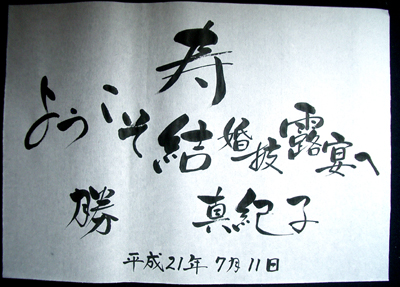 寿
ようこそ結婚披露宴へ
勝 真紀子
平成21年7月11日